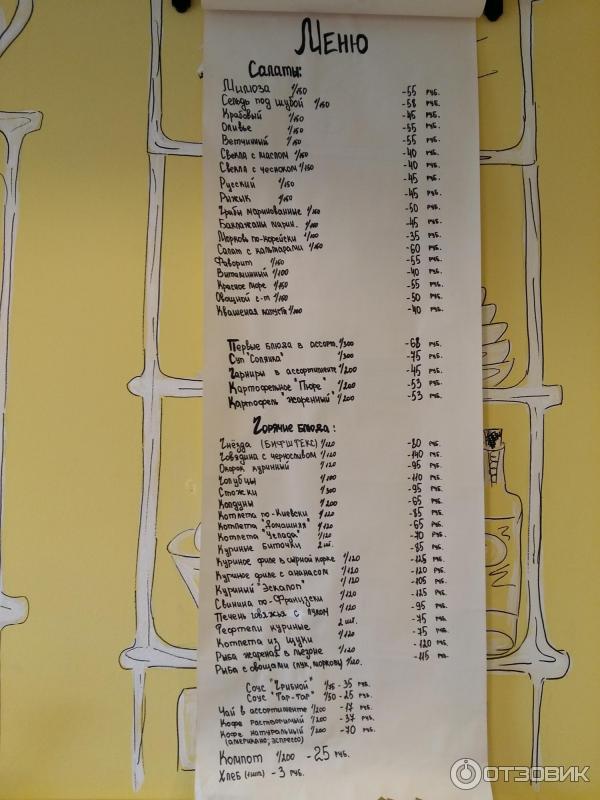 Меню
Салаты:
Мимоза 1/150 -55 руб.
Сельдь под шубой 1/150 -58 руб.
Крабовый 1/150 -45 руб.
Оливье 1/150 -55 руб.
Ветчинный 1/150 -55 руб.
Свекла с маслом 1/150 -40 руб.
Свекла с чесноком 1/150 -40 руб.
Русский 1/150 -45 руб.
Рыжик 1/150 -45 руб.
Грибы маринованные 1/150 -50 руб.
Баклажаны марин. 1/100 -45 руб.
Морковь по-корейски 1/100 -35 руб.
Салат с кальмарами 1/150 -60 руб.
Фаворит 1/150 -55 руб.
Витаминный 1/100 -40 руб.
Красное море 1/150 -55 руб.
Овощной с-т 1/150 -50 руб.
Квашеная капуста 1/100 -40 руб.
Первые блюда в ассорт. 1/300 -68 руб.
Суп "Солянка" 1/300 -75 руб.
Гарниры в ассортименте 1/200 -45 руб.
Картофельное "Пюре" 1/200 -53 руб.
Картофель "жаренный" 1/200 -53 руб.
Горячие блюда:
Гнёзда (БИФШТЕКС) 1/120 -80 руб.
Говядина с черносливом 1/120 -140 руб.
Окорок куринный 1/120 -95 руб.
Голубцы 1/180 -110 руб.
Стожки 1/300 -95 руб.
Колдуны 1/200 -65 руб.
Котлета по-Киевски 1/120 -85 руб.
Котлета "Домашняя" 1/120 -65 руб.
Котлета "Чепада" 1/120 -70 руб.
Куриные биточки 2 шт. -85 руб.
Куриное филе в сырной корке 1/120 -125 руб.
Куриное филе с ананасом 1/120 -120 руб.
Куриный "Эскалоп" 1/120 -105 руб.
Свинина по-Французски 1/120 -125 руб.
Печень говяжья с луком 1/120 -95 руб.
Тефтели куриные 2 шт. -75 руб.
Котлета из щуки 1/120 -75 руб.
Рыба жареная в льезоне 1/120 -120 руб.
Рыба с овощами (лук, морковь) 1/120. -115 руб.
Соус "Грибной" 1/75 -35 руб.
Соус "Тар-Тар" 1/50 -25 руб.
Чай в ассортименте 1/200 -17 руб.
Кофе растворимый 1/200 -37 руб.
Кофе натуральный 1/200 -70 руб.
(американо, эспрессо)
Компот 1/200 -25 руб.
Хлеб (1шт.) -3 руб.
ОТЗОВИК